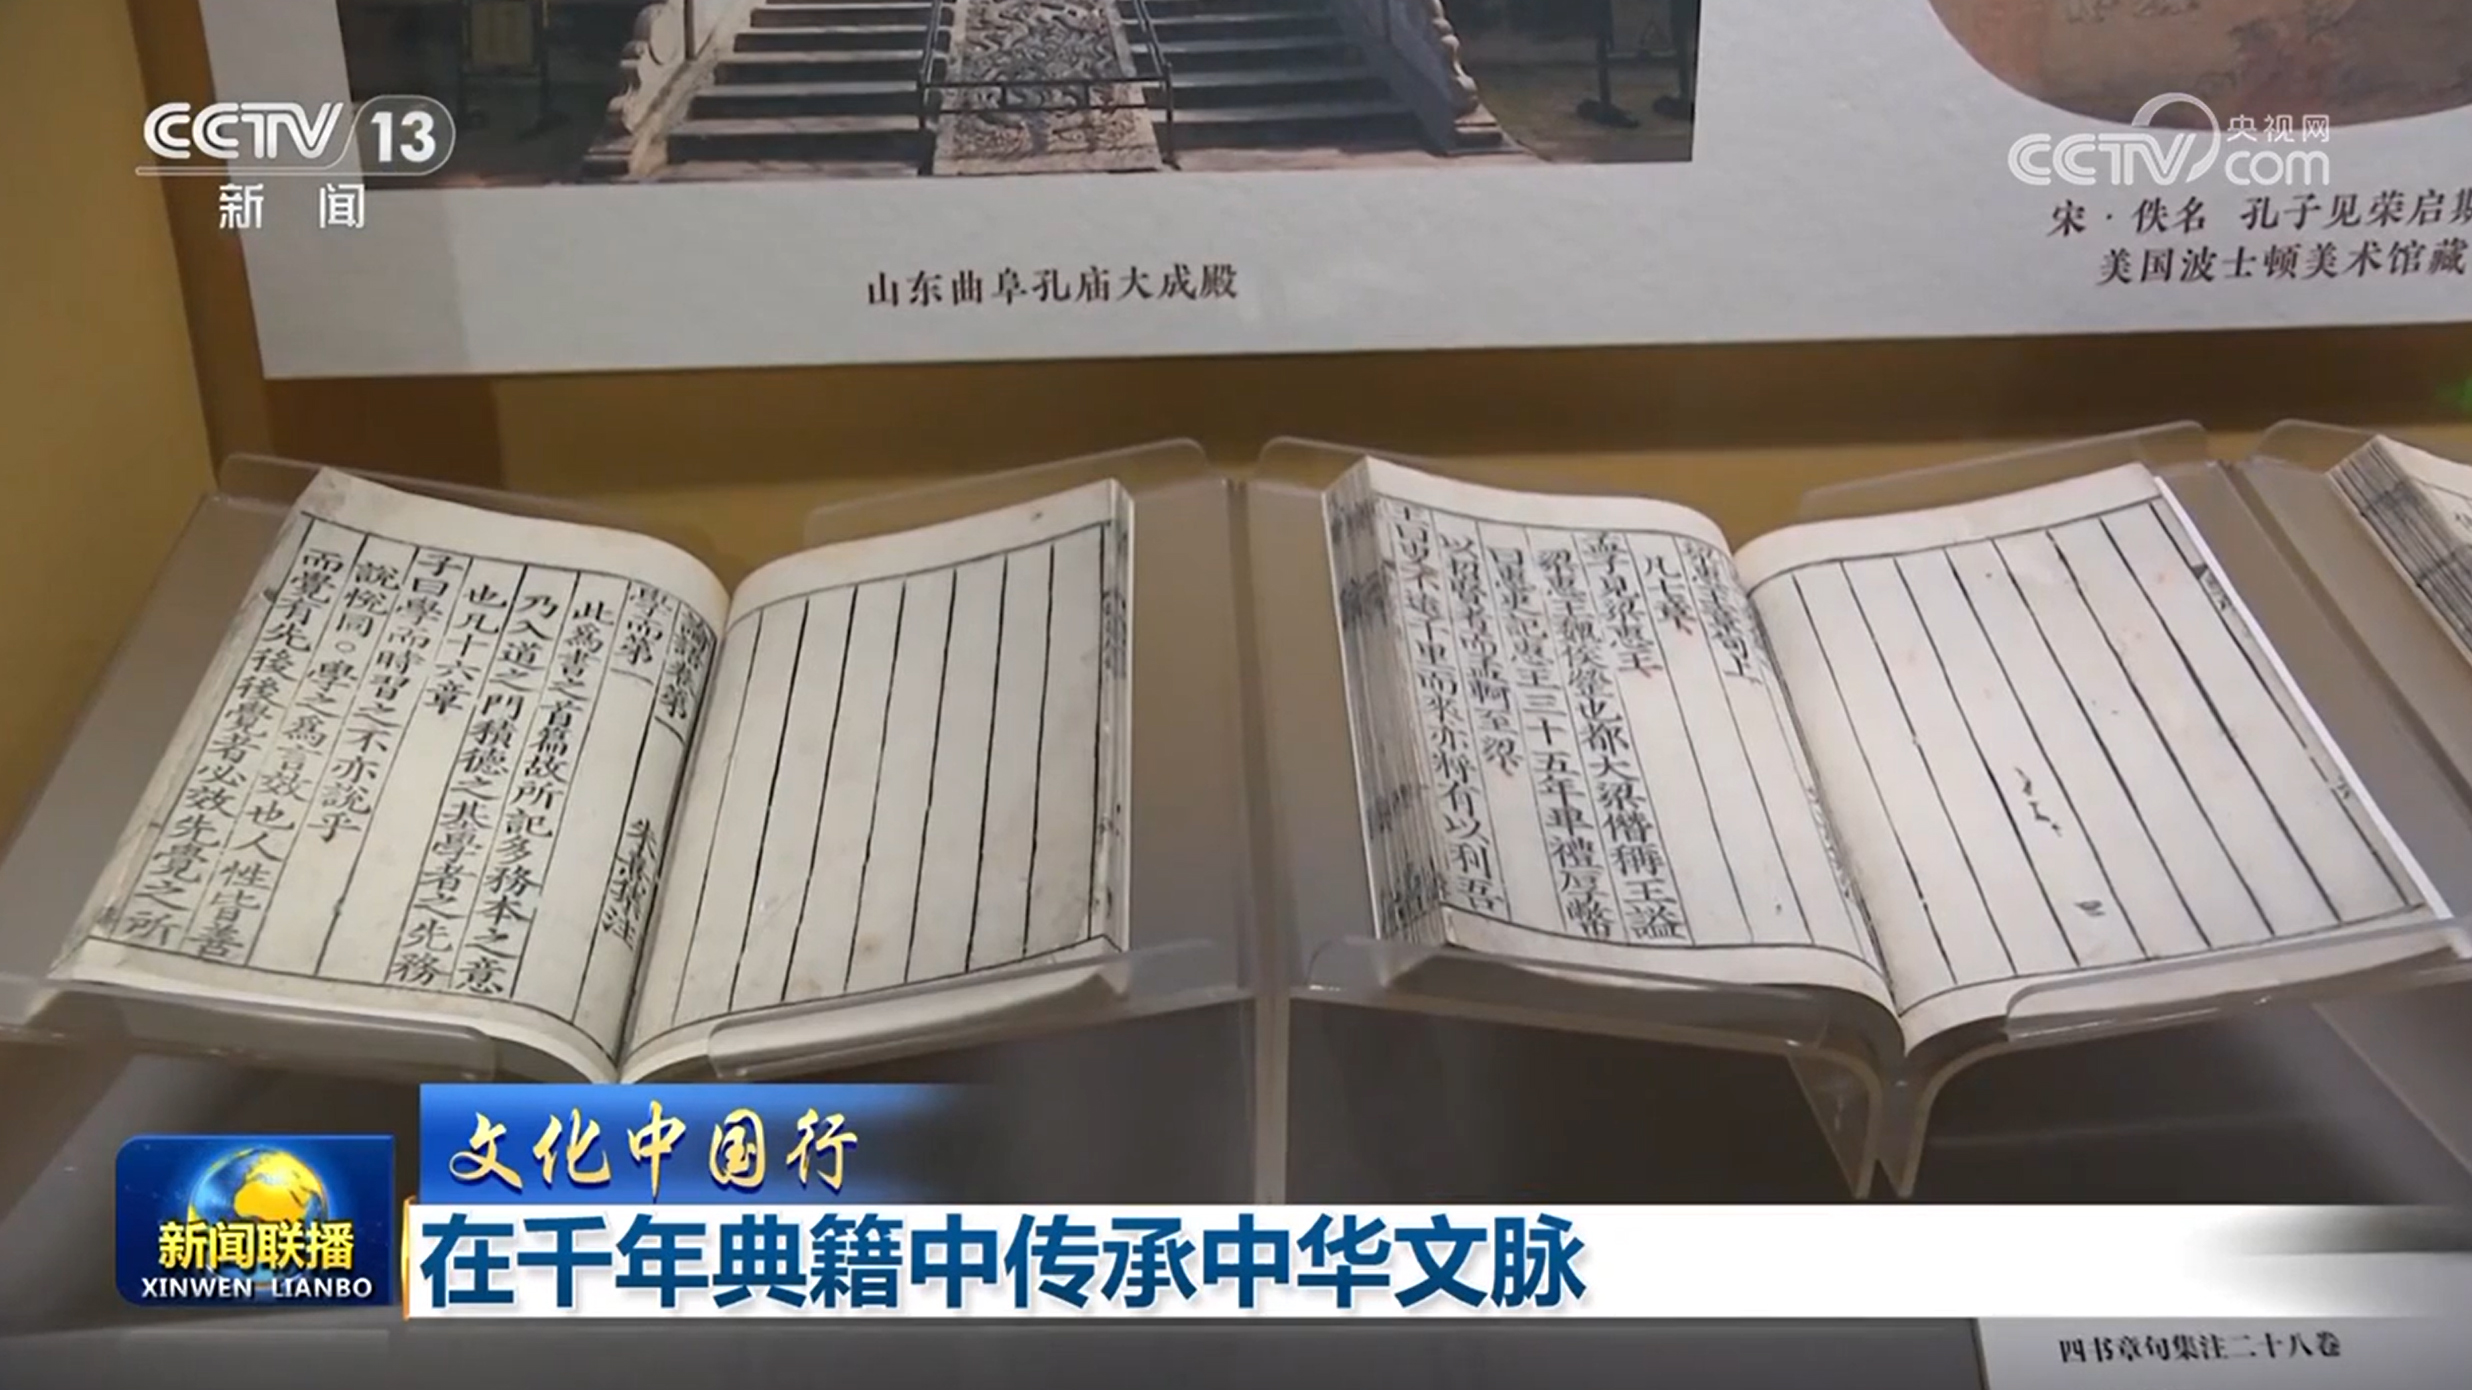 CCTV 13
新闻
央视网
CCTV com
宋·佚名 孔子见荣启期
美国波士顿美术馆藏
山东曲阜孔庙大成殿
論語卷第一
朱熹集註
學而第一
此為書之首篇故所記多務本之意
乃入道之門積德之基學者之先務
也凡十六章
子曰學而時習之不亦說乎
說悅同○學之為言效也人性皆善
而覺有先後後覺者必效先覺之所
梁惠王章句上
凡七章
孟子見梁惠王
梁惠王魏侯罃也都大梁僭稱王諡
曰惠史記惠王三十五年卑禮厚幣
以招賢者而孟軻至梁
王曰叟不遠千里而來亦將有以利吾
文化中国行
新闻联播
XINWEN LIANBO
在千年典籍中传承中华文脉
四书章句集注二十八卷